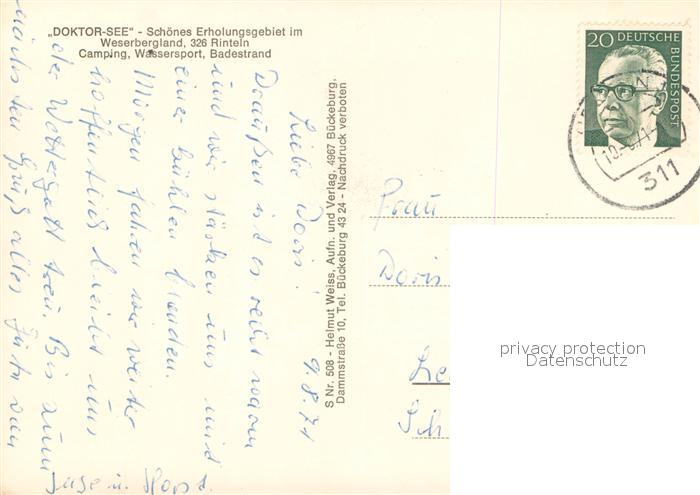 „DOKTOR-SEE" - Schönes Erholungsgebiet im
Weserbergland, 326 Rinteln
Camping, Wassersport, Badestrand
9.8.71
Liebe Doris!
Draußen ist es recht warm
und wir stärken uns mit
einer kühlen blonden.
Morgen fahren wir weiter
hoffentlich bleibt uns
der Wettergott treu. Bis zum
nächsten Gruß alles Gute von
Inge u. Horst.
S Nr. 508 - Helmut Weiss, Aufn. und Verlag, 4967 Bückeburg,
Dammstraße 10, Tel. Bückeburg 43 24 - Nachdruck verboten
20 DEUTSCHE
BUNDESPOST
311
Frau
Doris
privacy protection
Datenschutz